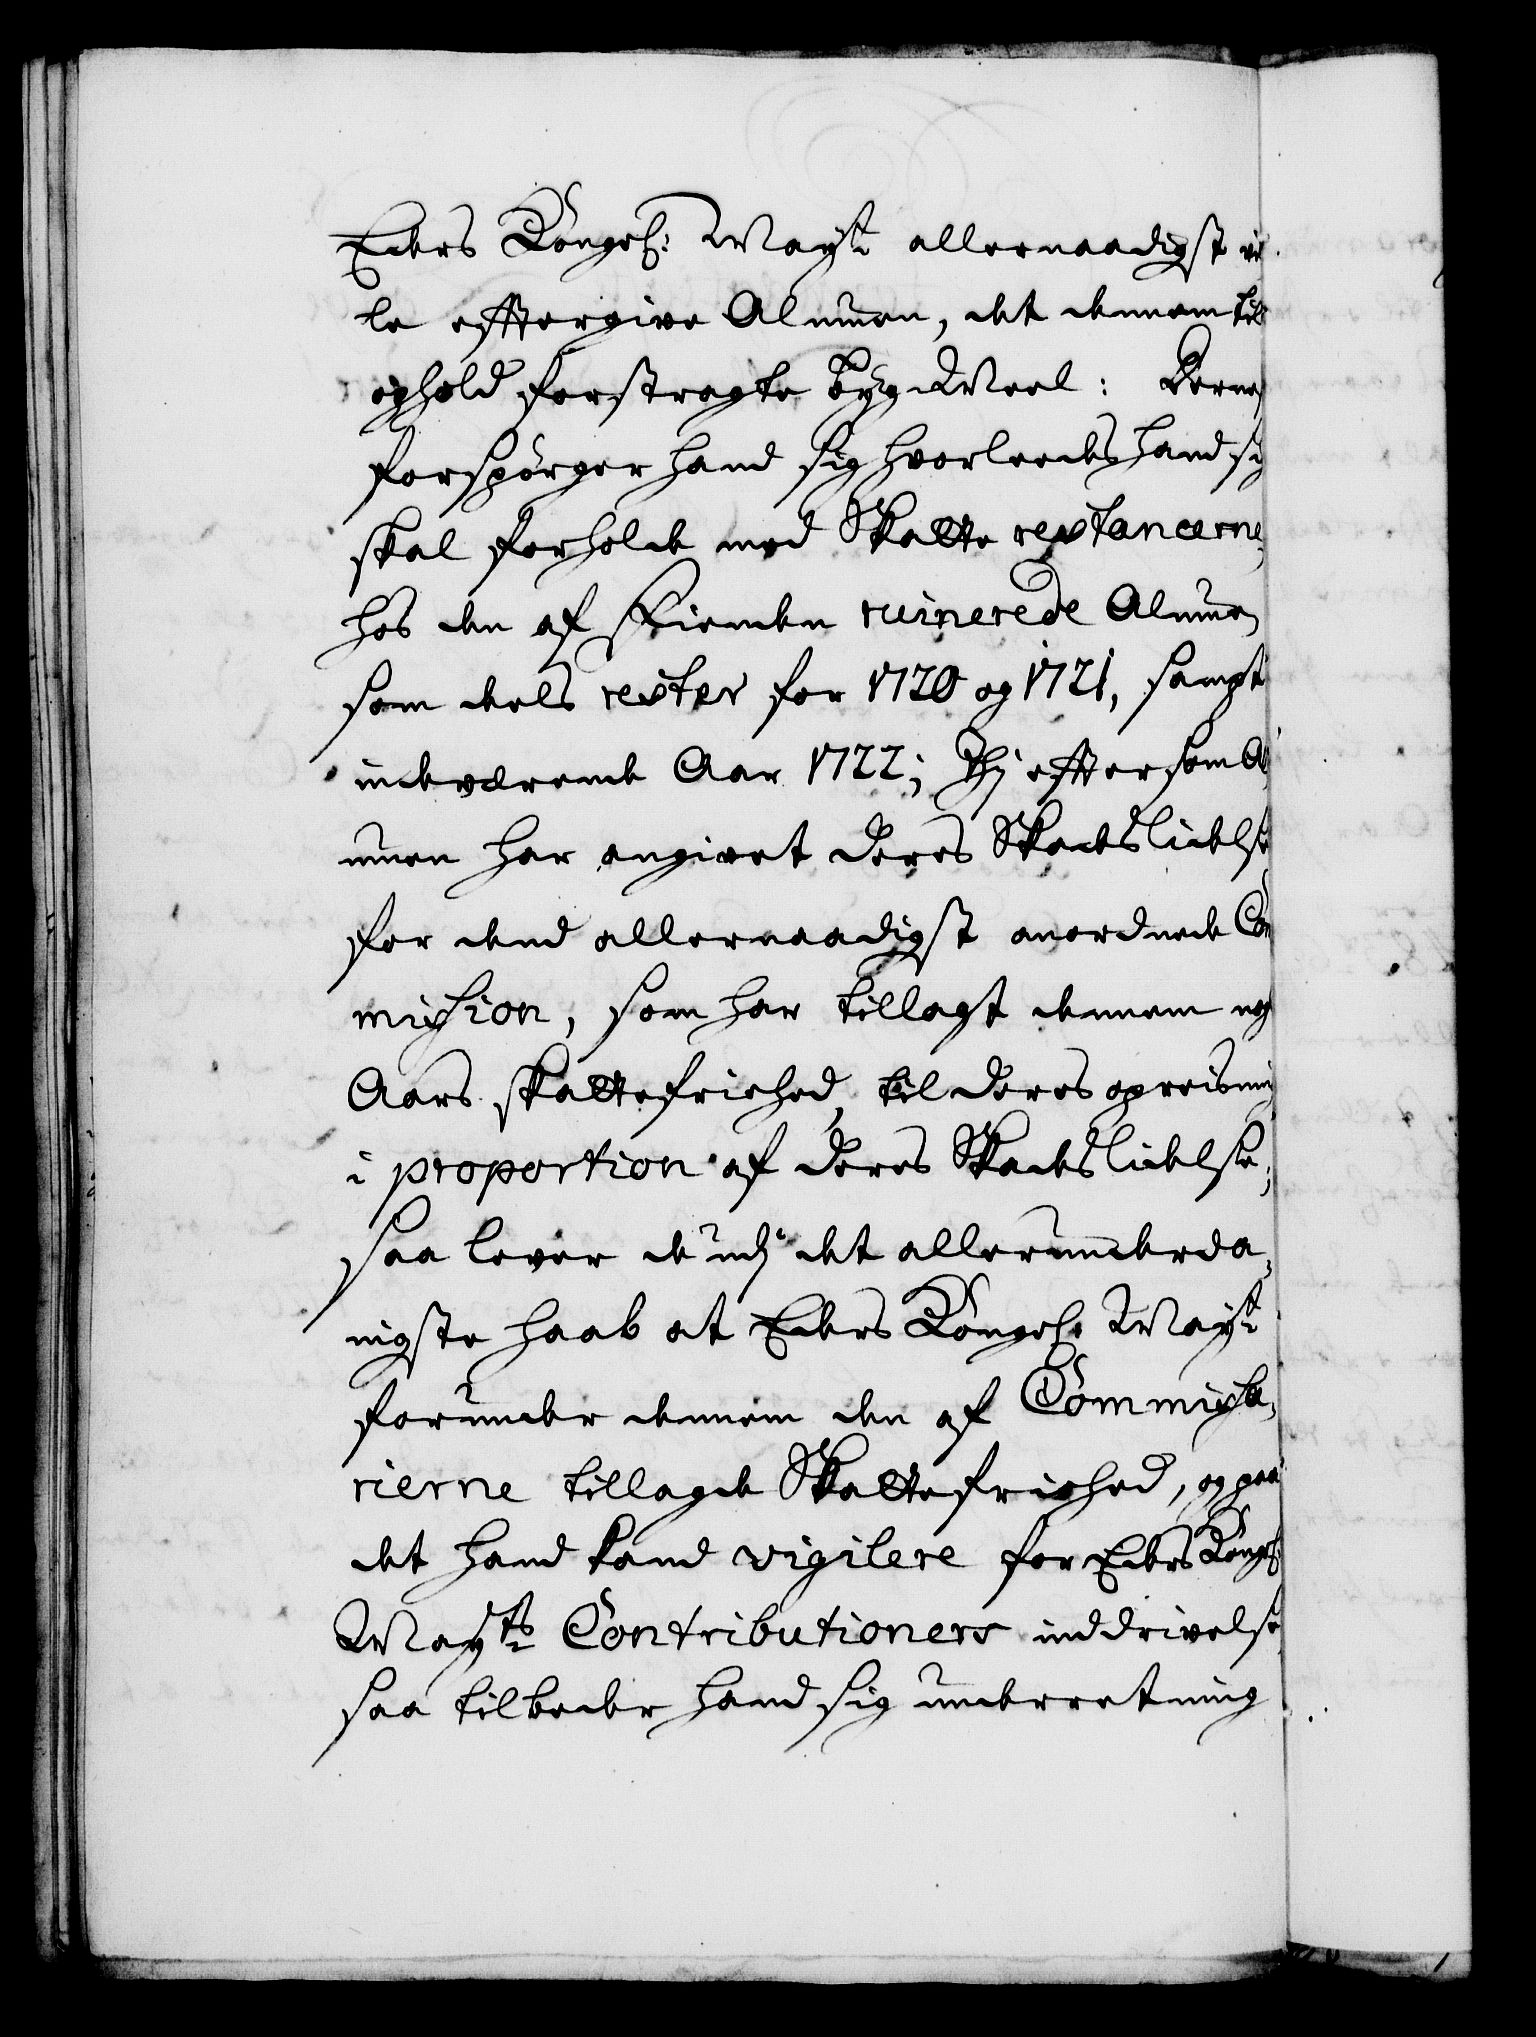 Eders Kongel: Mayst: allernaadigst vil
le efftergive Almuen, det dennem till
ophold forstragte byg Meel: Dernest
forspörger hand sig hvorleedes hand sig
skal forholde med Skatte restancerne,
hos den af Fienden ruinerede Almue,
som deels rester for 1720 og 1721, sampt
indeværende Aar 1722; Thj efftersom Al
muen har angivet deres Skadeslidelse
for dend allernaadigst anordnede Com
mission, som har tillagt dennem nogle
Aars skattefriehed, til deres opreisning
i proportion af deres Skadeslidelse;
saa lever de udj det allerunderda,
nigste haab at Eders Kongel: Mayst:
forunder dennem den af Commissa,
rierne tillagde Skattefriehed, og paa
det hand kand vigilere for Eders Kongel:
Mayts: Contributioners inddrivelse
saa tilbeder hand sig underretning